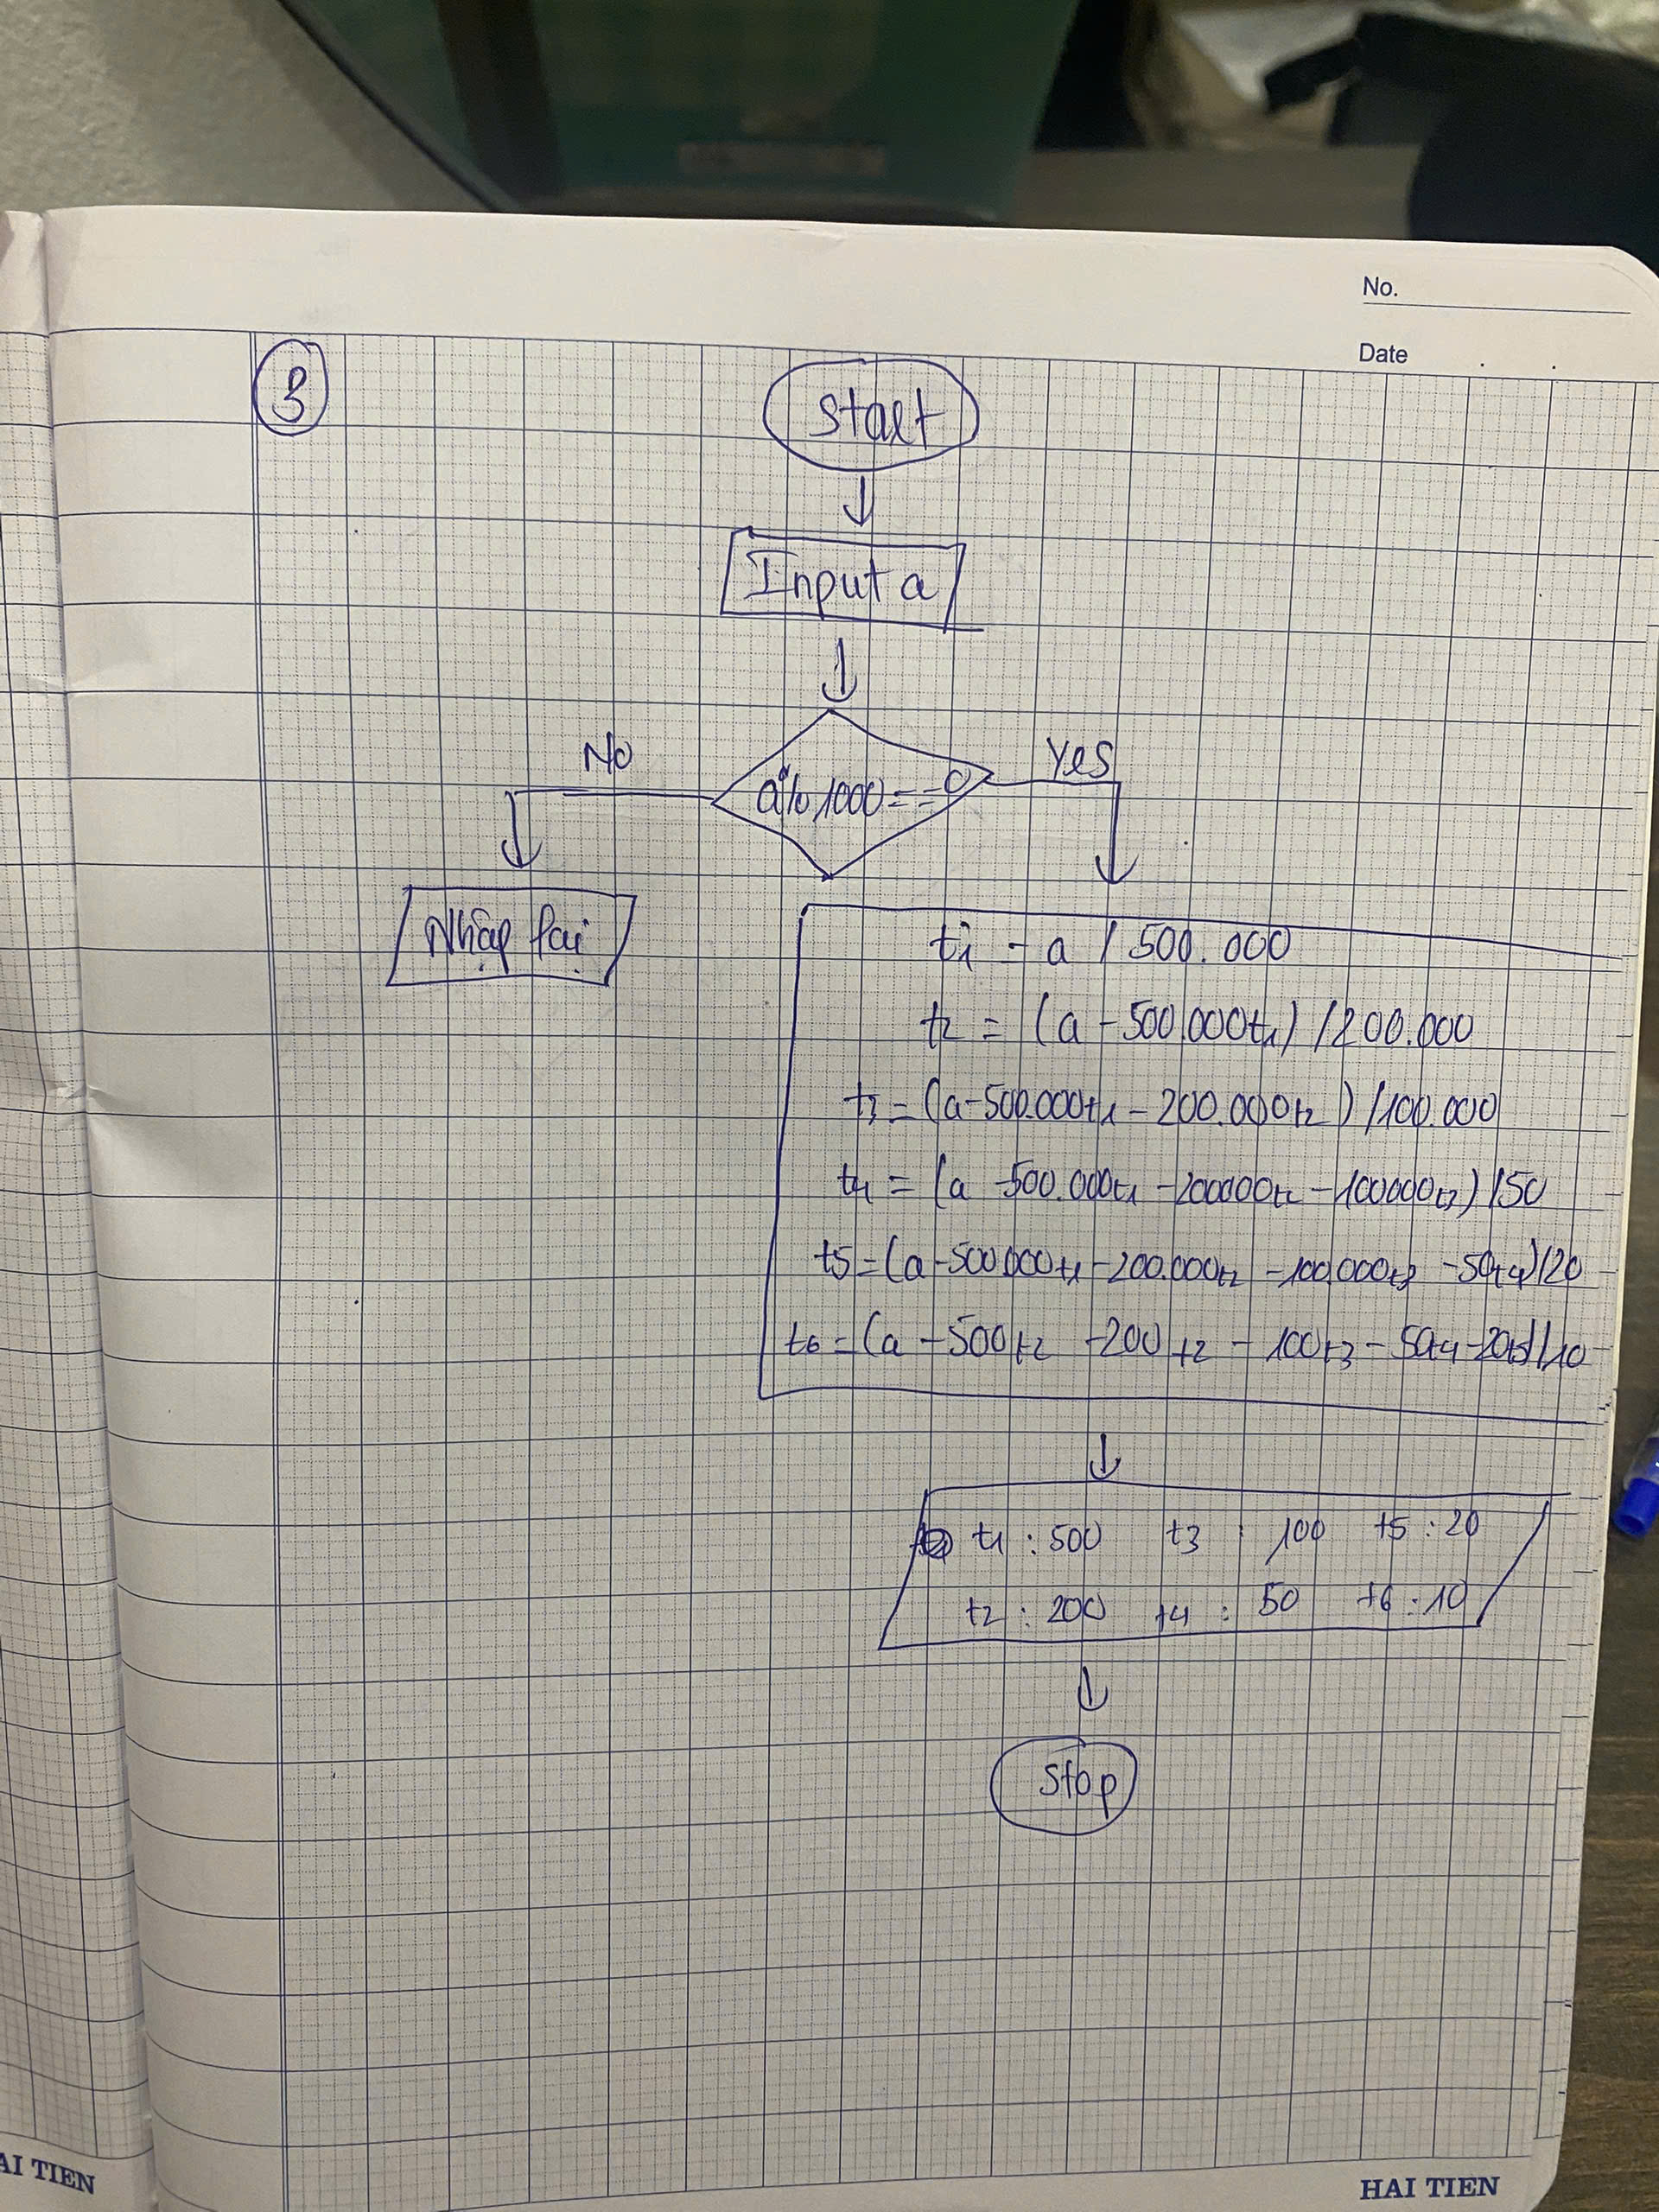 No.
Date
3
Start
Input a
a % 1000 == 0
No
Yes
Nhập lại
t1 = a / 500.000
t2 = (a - 500.000t1) / 200.000
t3 = (a - 500.000t1 - 200.000t2) / 100.000
t4 = (a - 500.000t1 - 200000t2 - 100000t3) / 50
t5 = (a - 500.000t1 - 200.000t2 - 100.000t3 - 50t4) / 20
t6 = (a - 500t2 - 200t2 - 100t3 - 50t4 - 20t5) / 10
t1 : 500 t3 : 100 t5 : 20
t2 : 200 t4 : 50 t6 : 10
Stop
AI TIEN
HAI TIEN